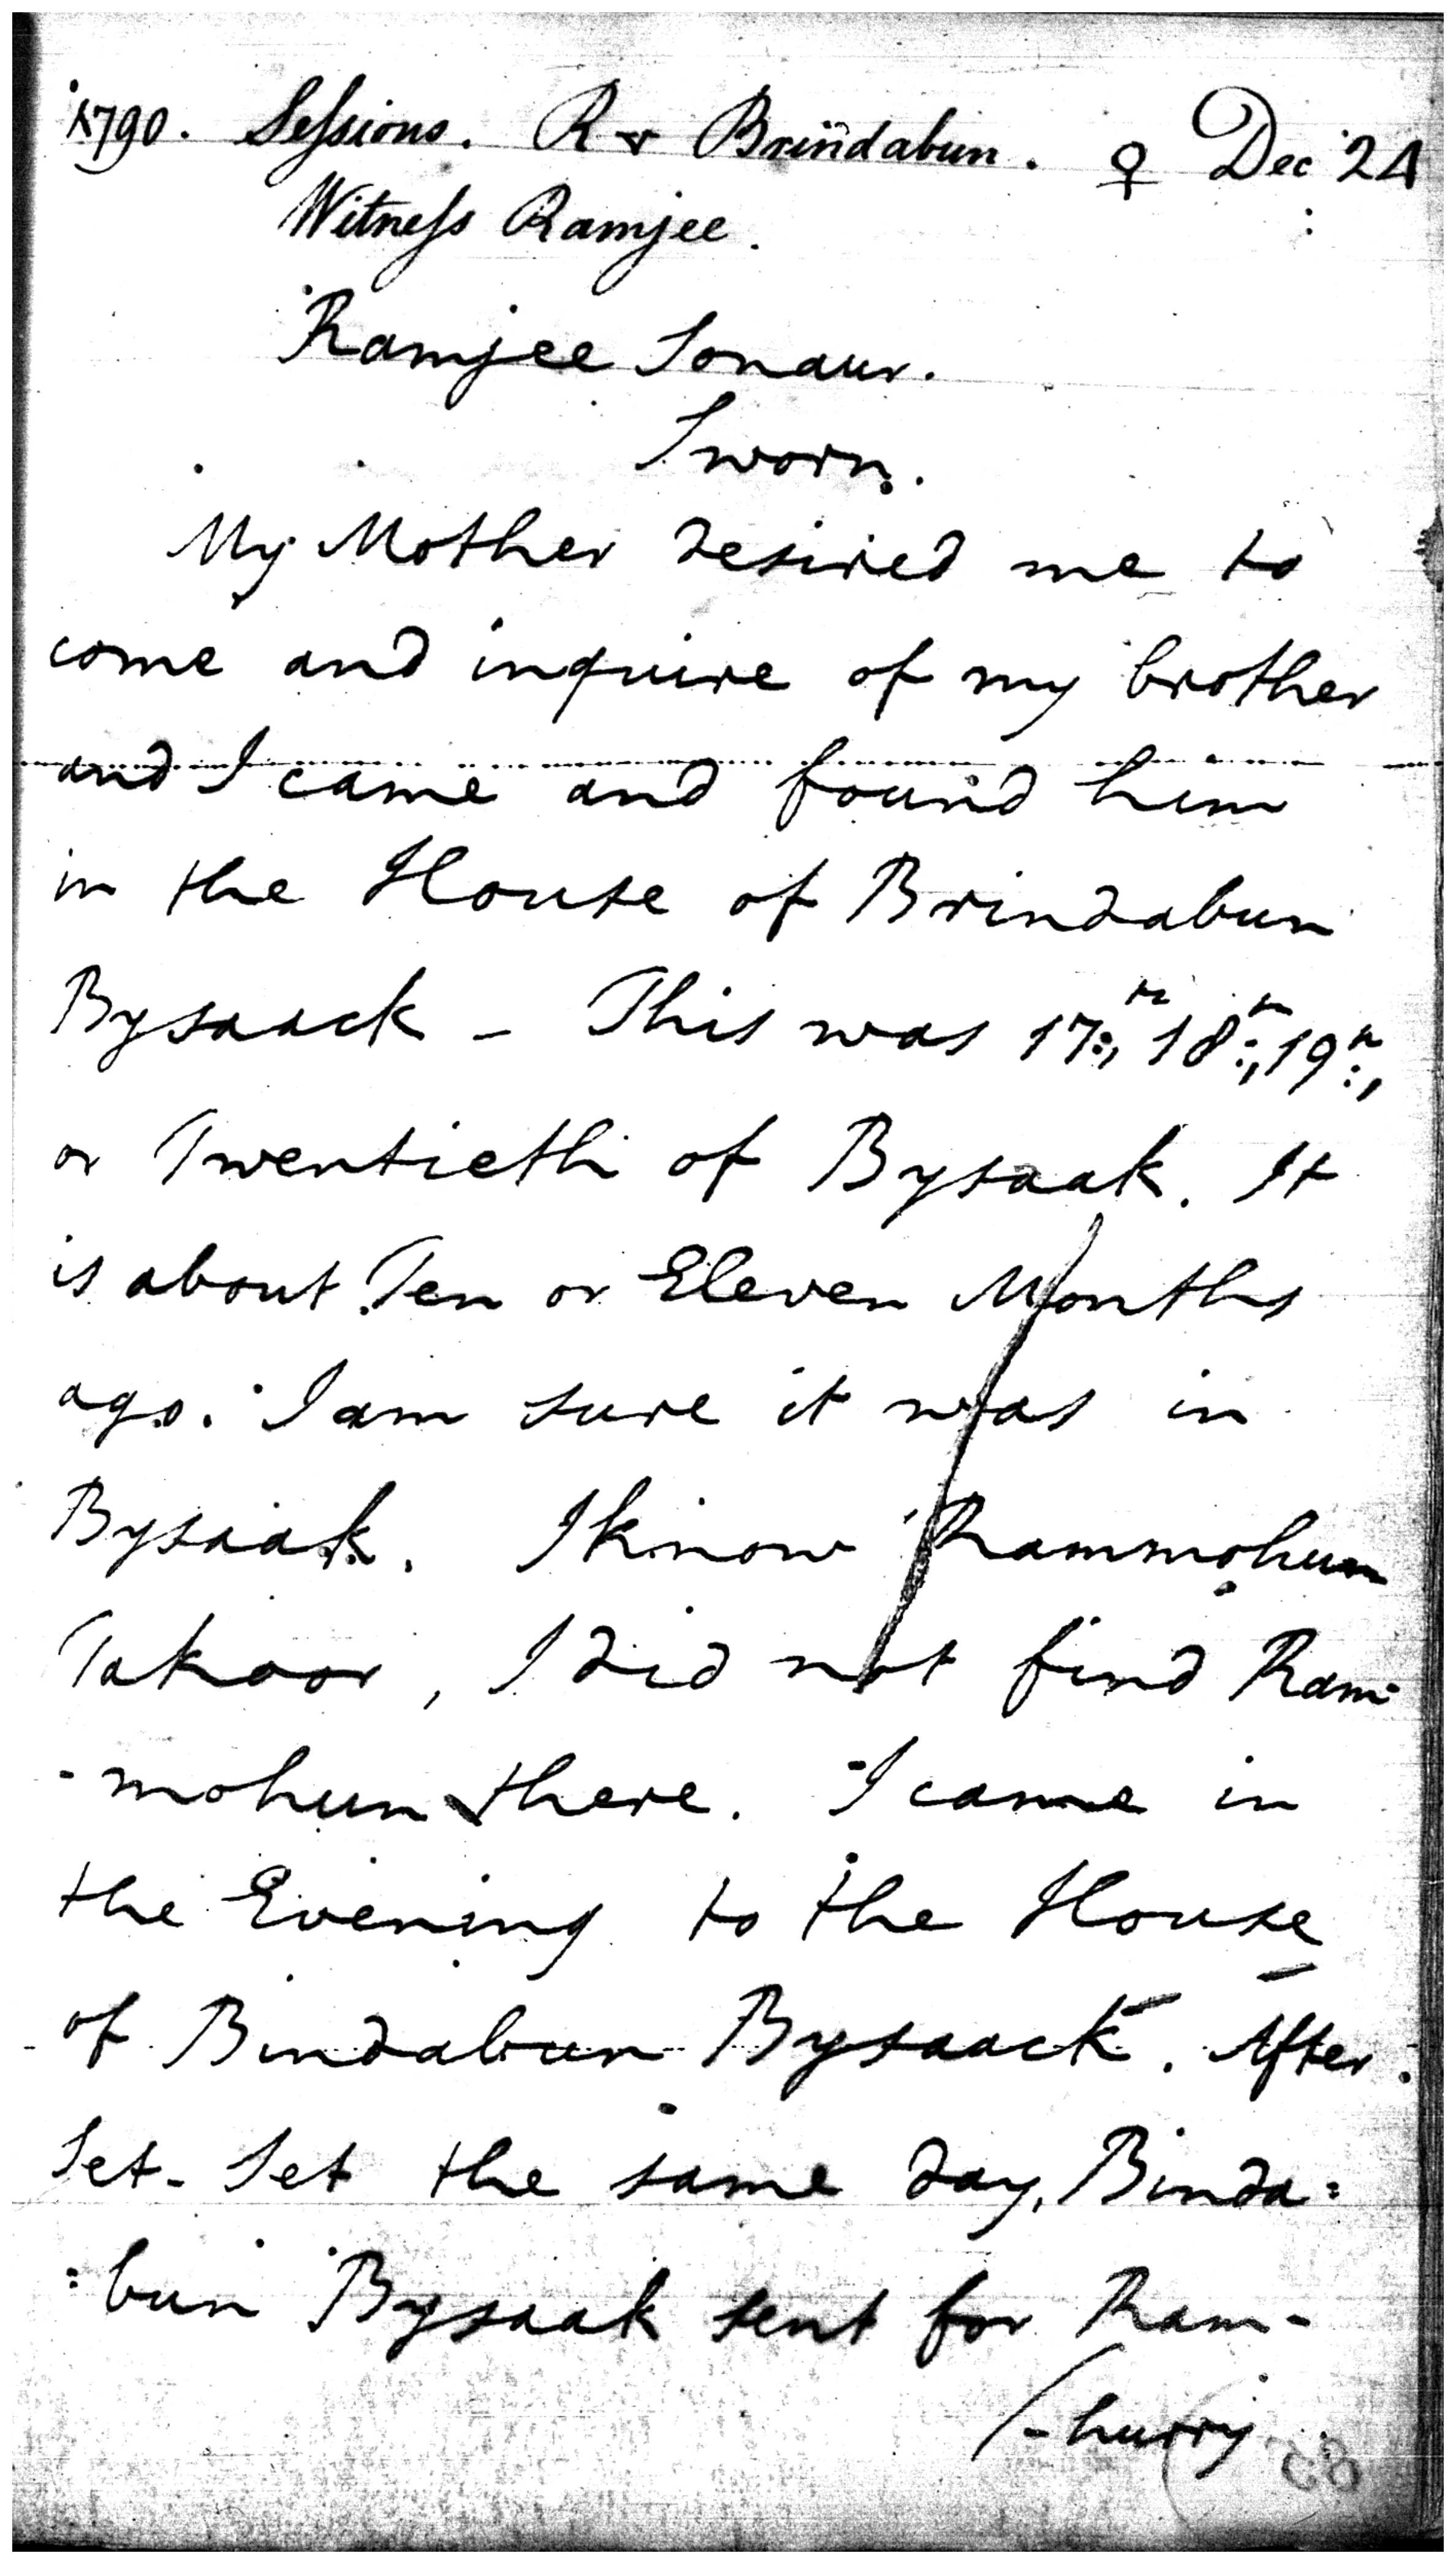 1790. Sessions. R v Brindabun. ♀ Dec 24
Witness Ramjee.
Ramjee Sonaur.
Sworn.
My Mother desired me to
come and inquire of my brother
and I came and found him
in the House of Brindabun
Bysaack – This was 17th, 18th, 19th,
or Twentieth of Bysaak. It
is about Ten or Eleven Months
ago. I am sure it was in
Bysaak. I know Rammohun
Takoor, I did not find Ram-
-mohun there. I came in
the Evening to the House
of Bindabun Bysaack. After
Set-Set the same day, Binda=
=bun Bysaak sent for Ram-
(-hurry